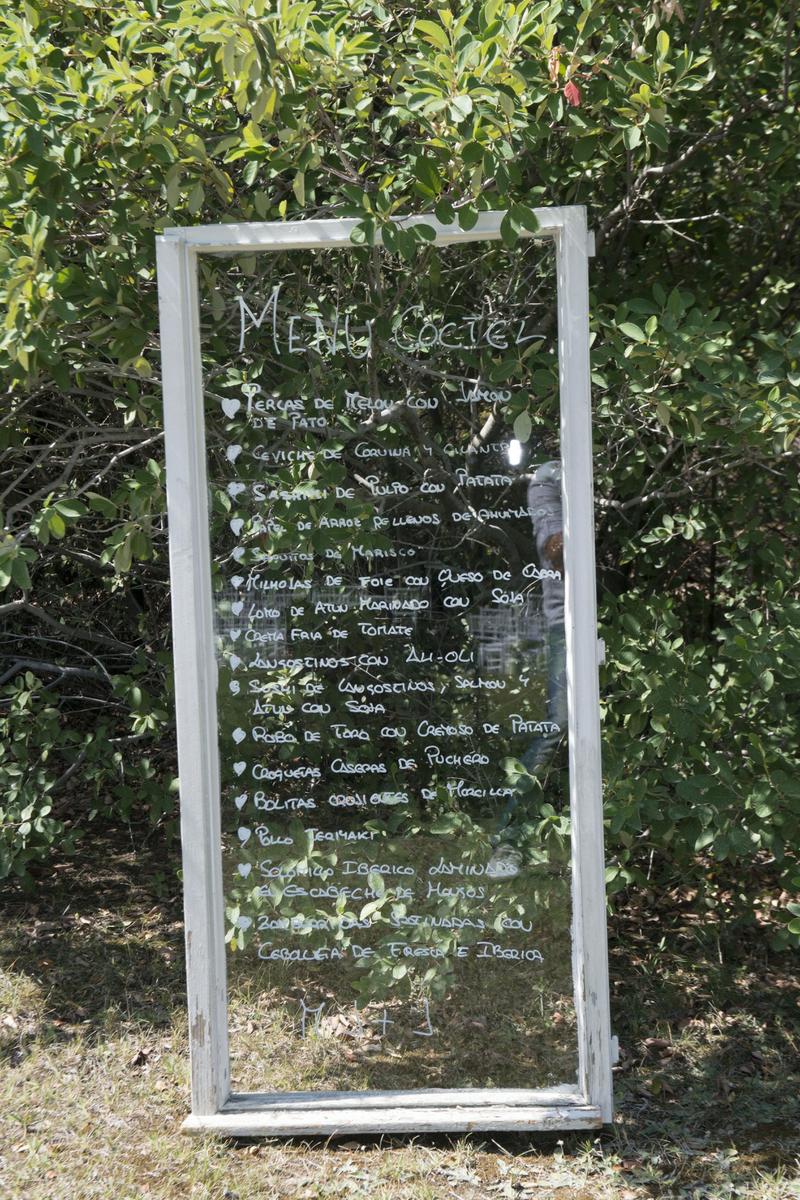 MENU COCTEL
PERLAS DE MELON CON JAMON
DE PATO
CEVICHE DE CORVINA Y CILANTRO
SASHIMI DE PULPO CON PATATA
PAPEL DE ARROZ RELLENOS DE AHUMADOS
SAQUITOS DE MARISCO
MILHOJAS DE FOIE CON QUESO DE CABRA
LOMO DE ATUN MARINADO CON SOJA
CREMA FRIA DE TOMATE
LANGOSTINOS CON ALI-OLI
SUSHI DE LANGOSTINOS, SALMON Y
ATUN CON SOJA
RABO DE TORO CON CREMOSO DE PATATA
CROQUETAS CASERAS DE PUCHERO
BOLITAS CRUJIENTES DE MORCILLA
POLLO TERIYAKI
SOLOMILLO IBERICO LAMINADO
EN ESCABECHE DE
HAMBURGUESITAS CON
CEBOLLETA DE FRESCA E IBERICA
M + J